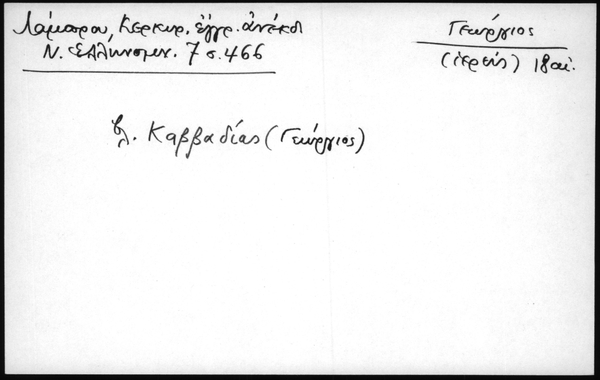 Λάμπρου, Κερκυρ. ἔγγρ. ἀνέκδ
Ν. Ἑλληνομν. 7 σ. 466
Γεώργιος
(ἱερεύς) 18 αἰ.
βλ. Καββαδίας (Γεώργιος)